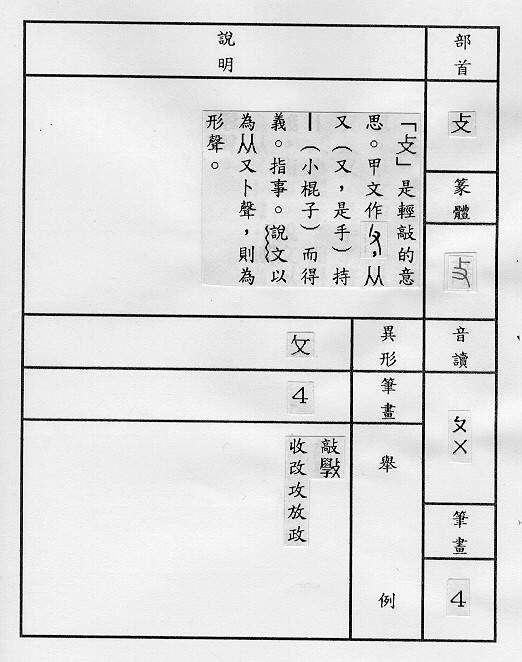 部首
攴
篆體
音讀
ㄆㄨ
筆畫
4
說明
「攴」是輕敲的意
思。甲文作，从
又（又，是手）持
丨（小棍子）而得
義。指事。說文以
為从又卜聲，則為
形聲。
異形
攵
筆畫
4
舉例
敲斅
收改攻放政